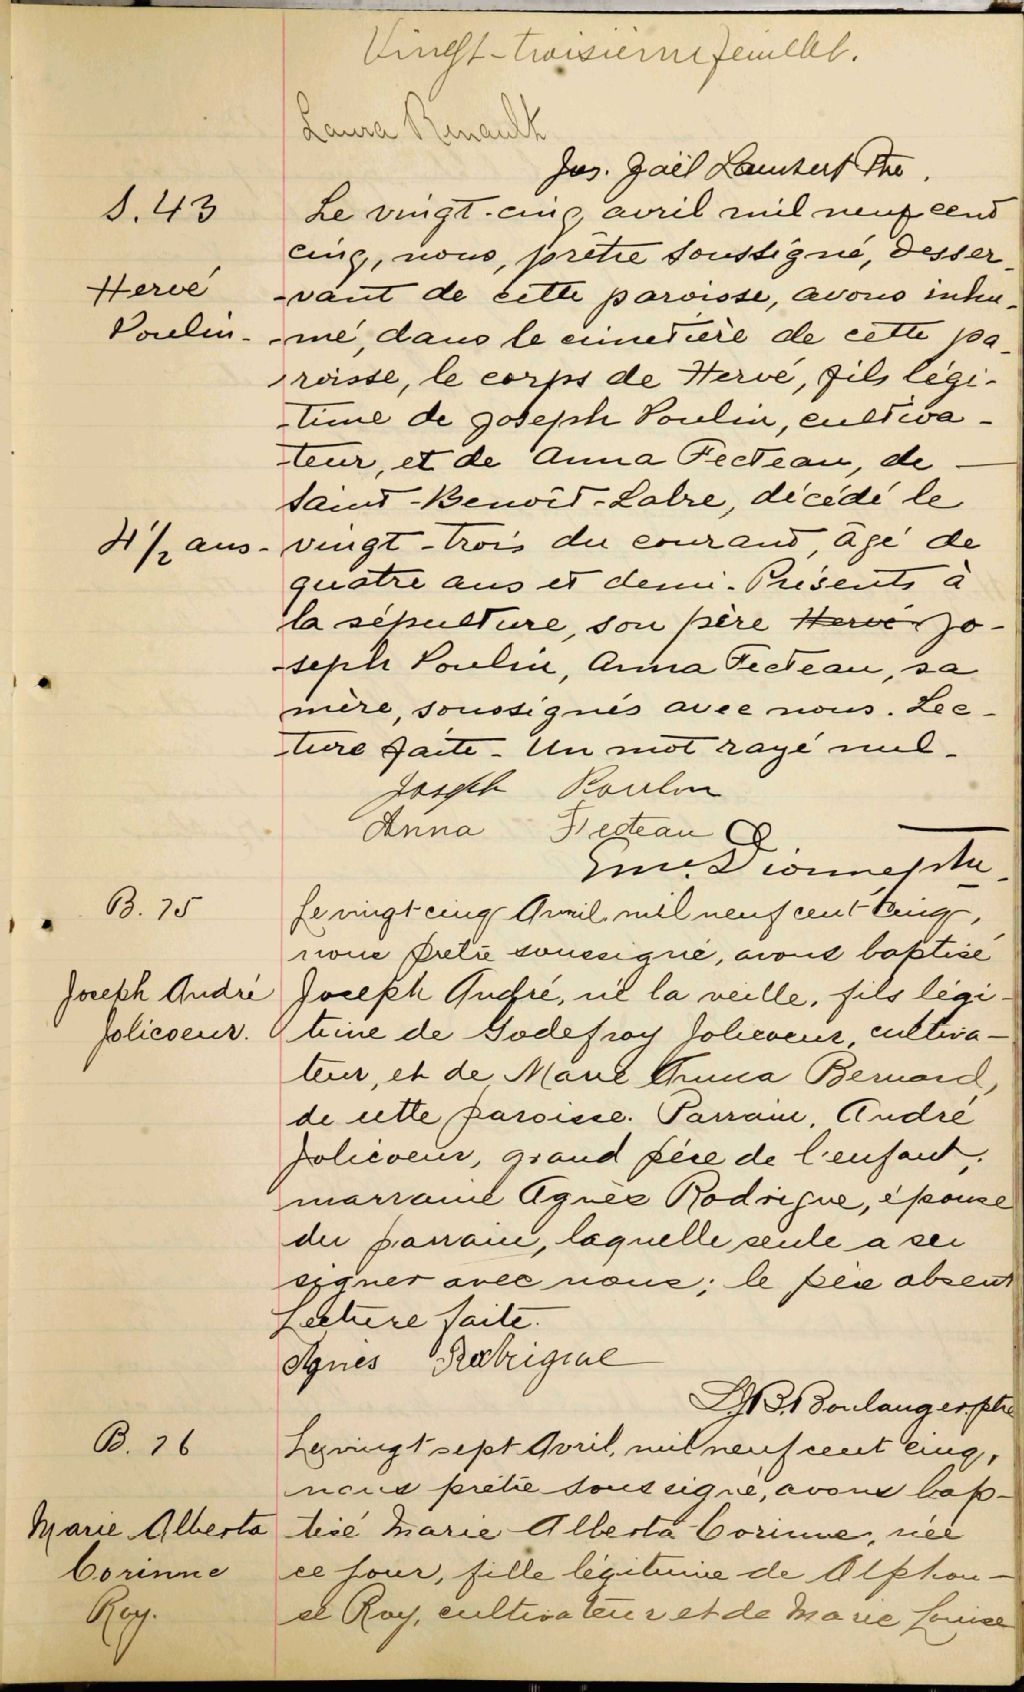 Vingt-troisième feuillet.
Laura Renault
Jos. Joël Lambert Ptre.
S. 43
Le vingt-cinq avril mil neuf cent
cinq, nous, prêtre soussigné, desser-
Hervé
-vant de cette paroisse, avons inhu-
Poulin-
-mé, dans le cimetière de cette pa-
roisse, le corps de Hervé, fils légi-
-time de Joseph Poulin, cultiva-
-teur, et de Anna Fecteau, de —
Saint-Benoît-Labre, décédé le
4 1/2 ans-
vingt-trois du courant, âgé de
quatre ans et demi. Présents à
la sépulture, son père Hervé Jo-
-seph Poulin, Anna Fecteau, sa
mère, soussignés avec nous. Lec-
-ture faite- Un mot rayé nul-
Joseph Poulin
Anna Fecteau
Em. Dionne ptre.
B. 75
Le vingt cinq Avril mil neuf cent cinq,
nous prêtre soussigné, avons baptisé
Joseph André
Joseph André, né la veille, fils légi-
Jolicoeur.
time de Godefroy Jolicoeur, cultiva-
teur, et de Marie Anna Bernard,
de cette paroisse. Parrain, André
Jolicoeur, grand père de l'enfant;
marraine Agnès Rodrigue, épouse
du parrain, laquelle seule a su
signer avec nous; le père absent
Lecture faite.
Agnès Rodrigue
L.J.B. Boulanger, ptre
B. 76
Le vingt sept Avril, mil neuf cent cinq,
nous prêtre soussigné, avons bap-
Marie Alberta
tisé Marie Alberta Corinne, née
Corinne
ce jour, fille légitime de Alphon-
Roy.
se Roy, cultivateur et de Marie Louise